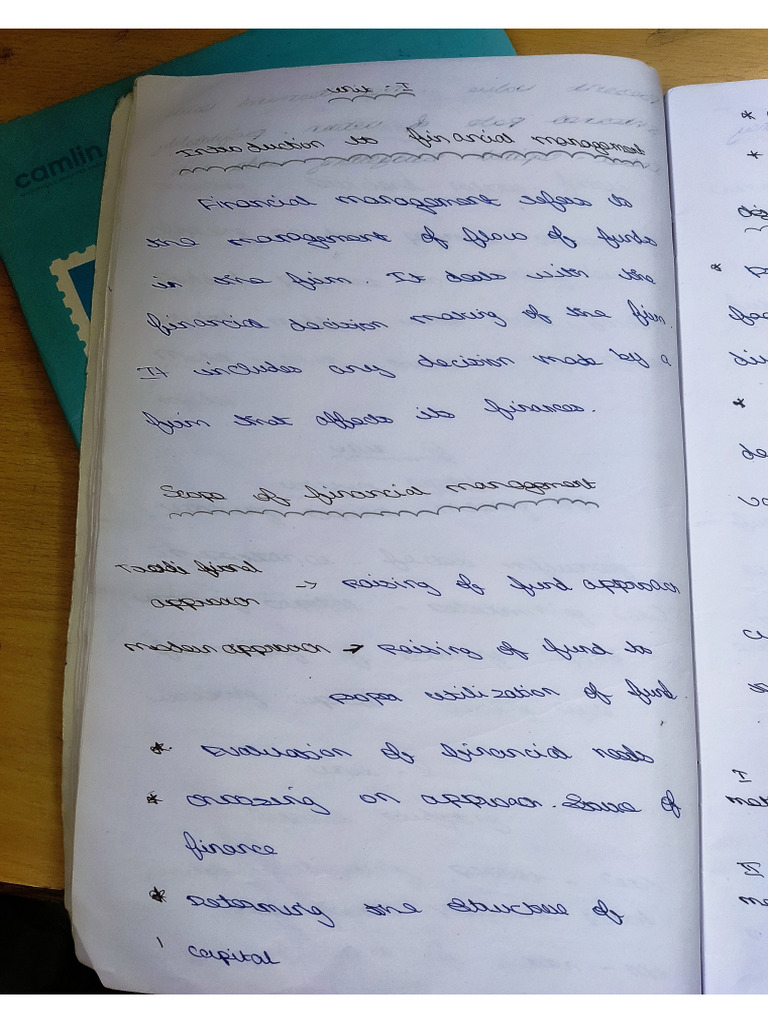 camlin
Unit : I
Introduction to financial management
Financial management refers to
the management of flow of funds
in the firm. It deals with the
financial decision making of the firm.
It includes any decision made by a
firm that affects its finances.
Scope of financial management
Traditional
approach -> Raising of fund approach
modern approach -> Raising of fund to
proper utilization of fund.
* Evaluation of financial needs
* choosing an approach. Source of
finance
* Determing the structure of
capital